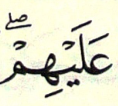 عَلَيْهِمْۖ